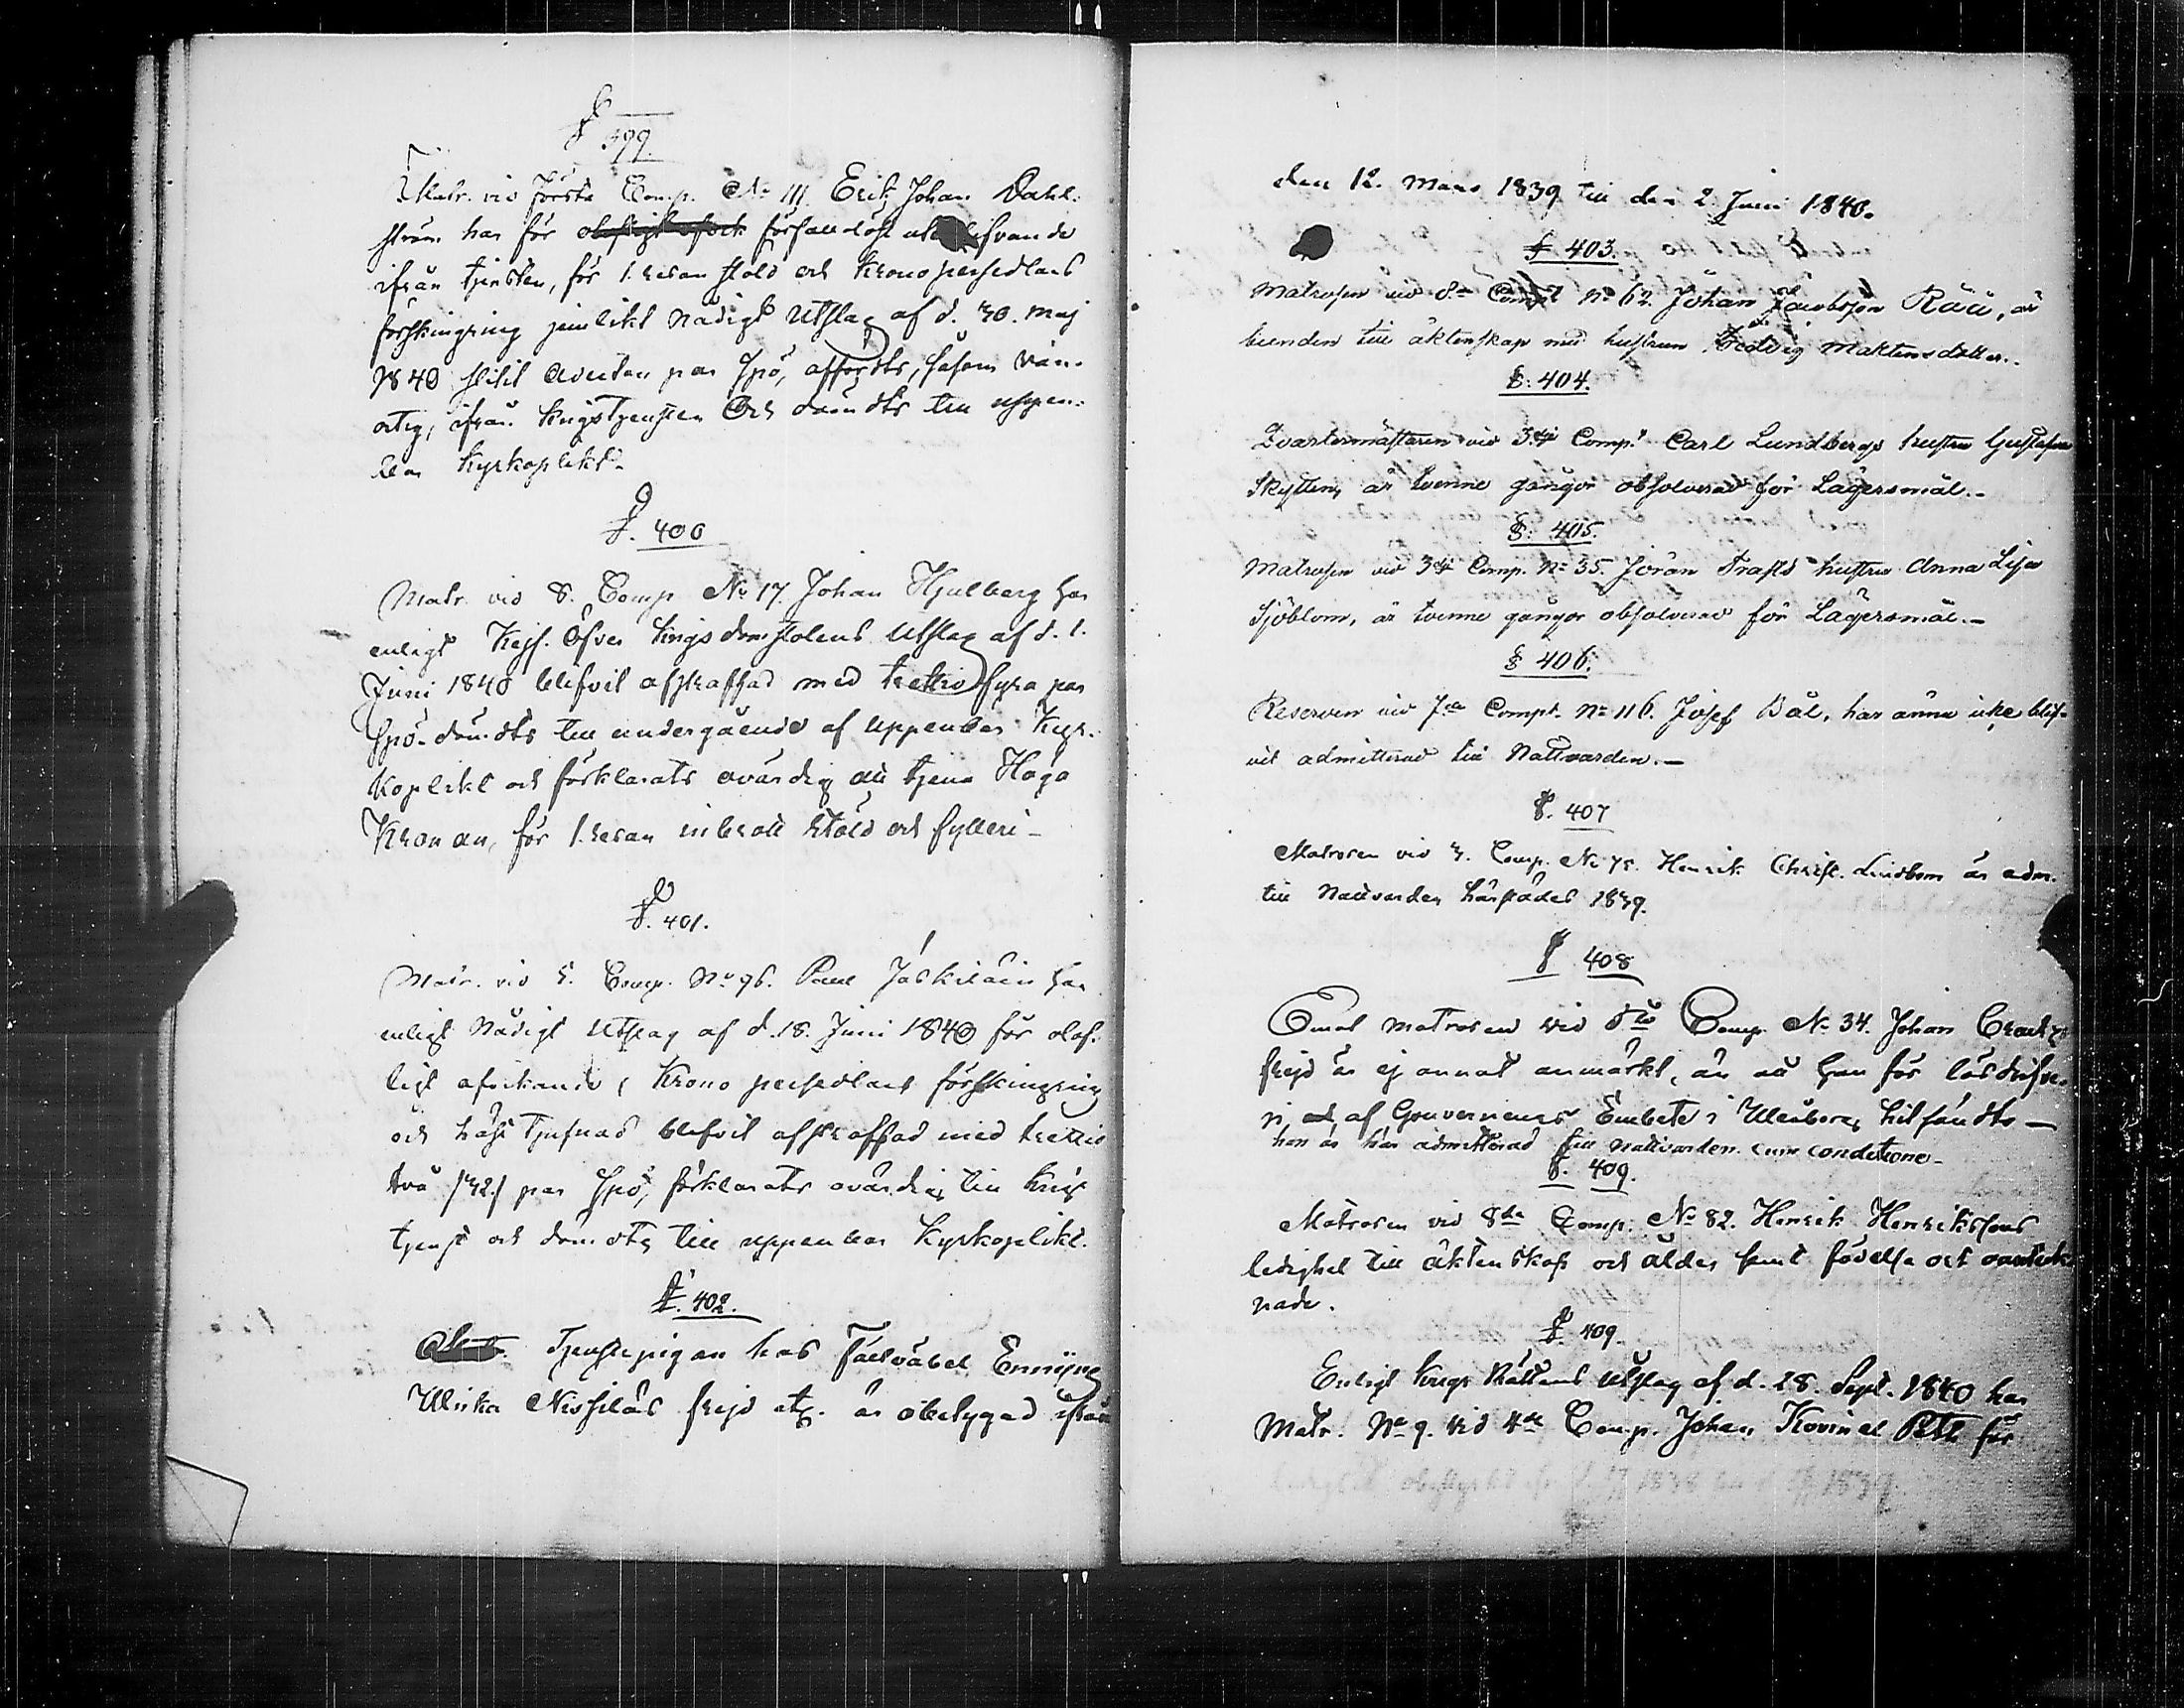 § 399.
Matr. vid Första Comp. No 111. Erik Johan Dahl-
ström har för förfallolöst ute blifvande
ifrån tjensten, för 1. resan stöld och Krono persedlars
förskingring jemlikt Nådigt Utslag af d. 30. Maj
1840 slitit adertan par spö, afförts, såsom van-
artig, ifrån Krigstjensten och dömdts till uppen-
bar Kyrkoplikt.
§. 400
Matr. vid 8. Comp No 17. Johan Hjulberg har
enligt Kejs. Öfver Krigsdomstolens Utslag af d. 1.
Juni 1840 blifvit afstraffad med trettiofyra par
spö. dömdts till undergående af uppenbar Kyr-
koplikt och förklarats ovärdig att tjena Höga
Kronan, för 1. resan inbrott stöld och fylleri-
§. 401.
Matr. vid 5. Comp. No 96. Paul Jäskiläin har
enligt Nådigt Utslag af d. 18. Juni 1840 för olof-
ligt afvikande, Krono persedlars förskingring
och häst tjufnad blifvit afstraffad med trettio
två /32/ par spö, förklarats ovärdig till Krigs
tjenst och dömdts till uppenbar Kyrkoplikt.
§. 402.
Tjenstepigan hos Fältväbel Enrijng
Ulrika Nissiläs frejd etc. är obetygad ifrån
den 12. Mars 1839 till den 2. Juni 1840.
§ 403.
Matrosen vid 8de Comp No 62. Johan Jacobsson Räii, är
bunden till äktenskap med hustrun Hedvig Maktensdotter.
§: 404.
Qvartermästaren vid 3dje Comp. Carl Lundbergs hustru Gustafva
Skytten, är tvenne gångor absolverad för Lägersmål.-
§: 405.
Matrosen vid 3dje Comp. No 35 Jöran Trasts hustru Anna Lisa
Sjöblom, är tvenne gångor absolverad för Lägersmål.-
§ 406.
Reserven vid 7de Comp. No 116. Josef Bål, har ännu icke blif-
vit admitterad till Nattvarden.-
§. 407
Matrosen vid 3. Comp. No 75. Henrik Christ. Lindbom är adm.
till Nattvarden härstädes 1839.
§ 408
Emot matrosen vid 5te Comp. No 34. Johan
frejd är ej annat anmärkt, än att han för lösdrifve-
ri af Gouverneurs Embetet i Uleåborg hitsändts -
han är här admitterad till nattvarden cum conditione-
§. 409.
Matrosen vid 8de Comp. No 82. Henrik Henrikssons
ledighet till äktenskap och ålder samt födelse ort
nade.
§. 409.
Enligt Krigs Rättens Utslag af d. 28. Sept. 1840 har
Matr. No 9. vid 4de Comp. Johan för